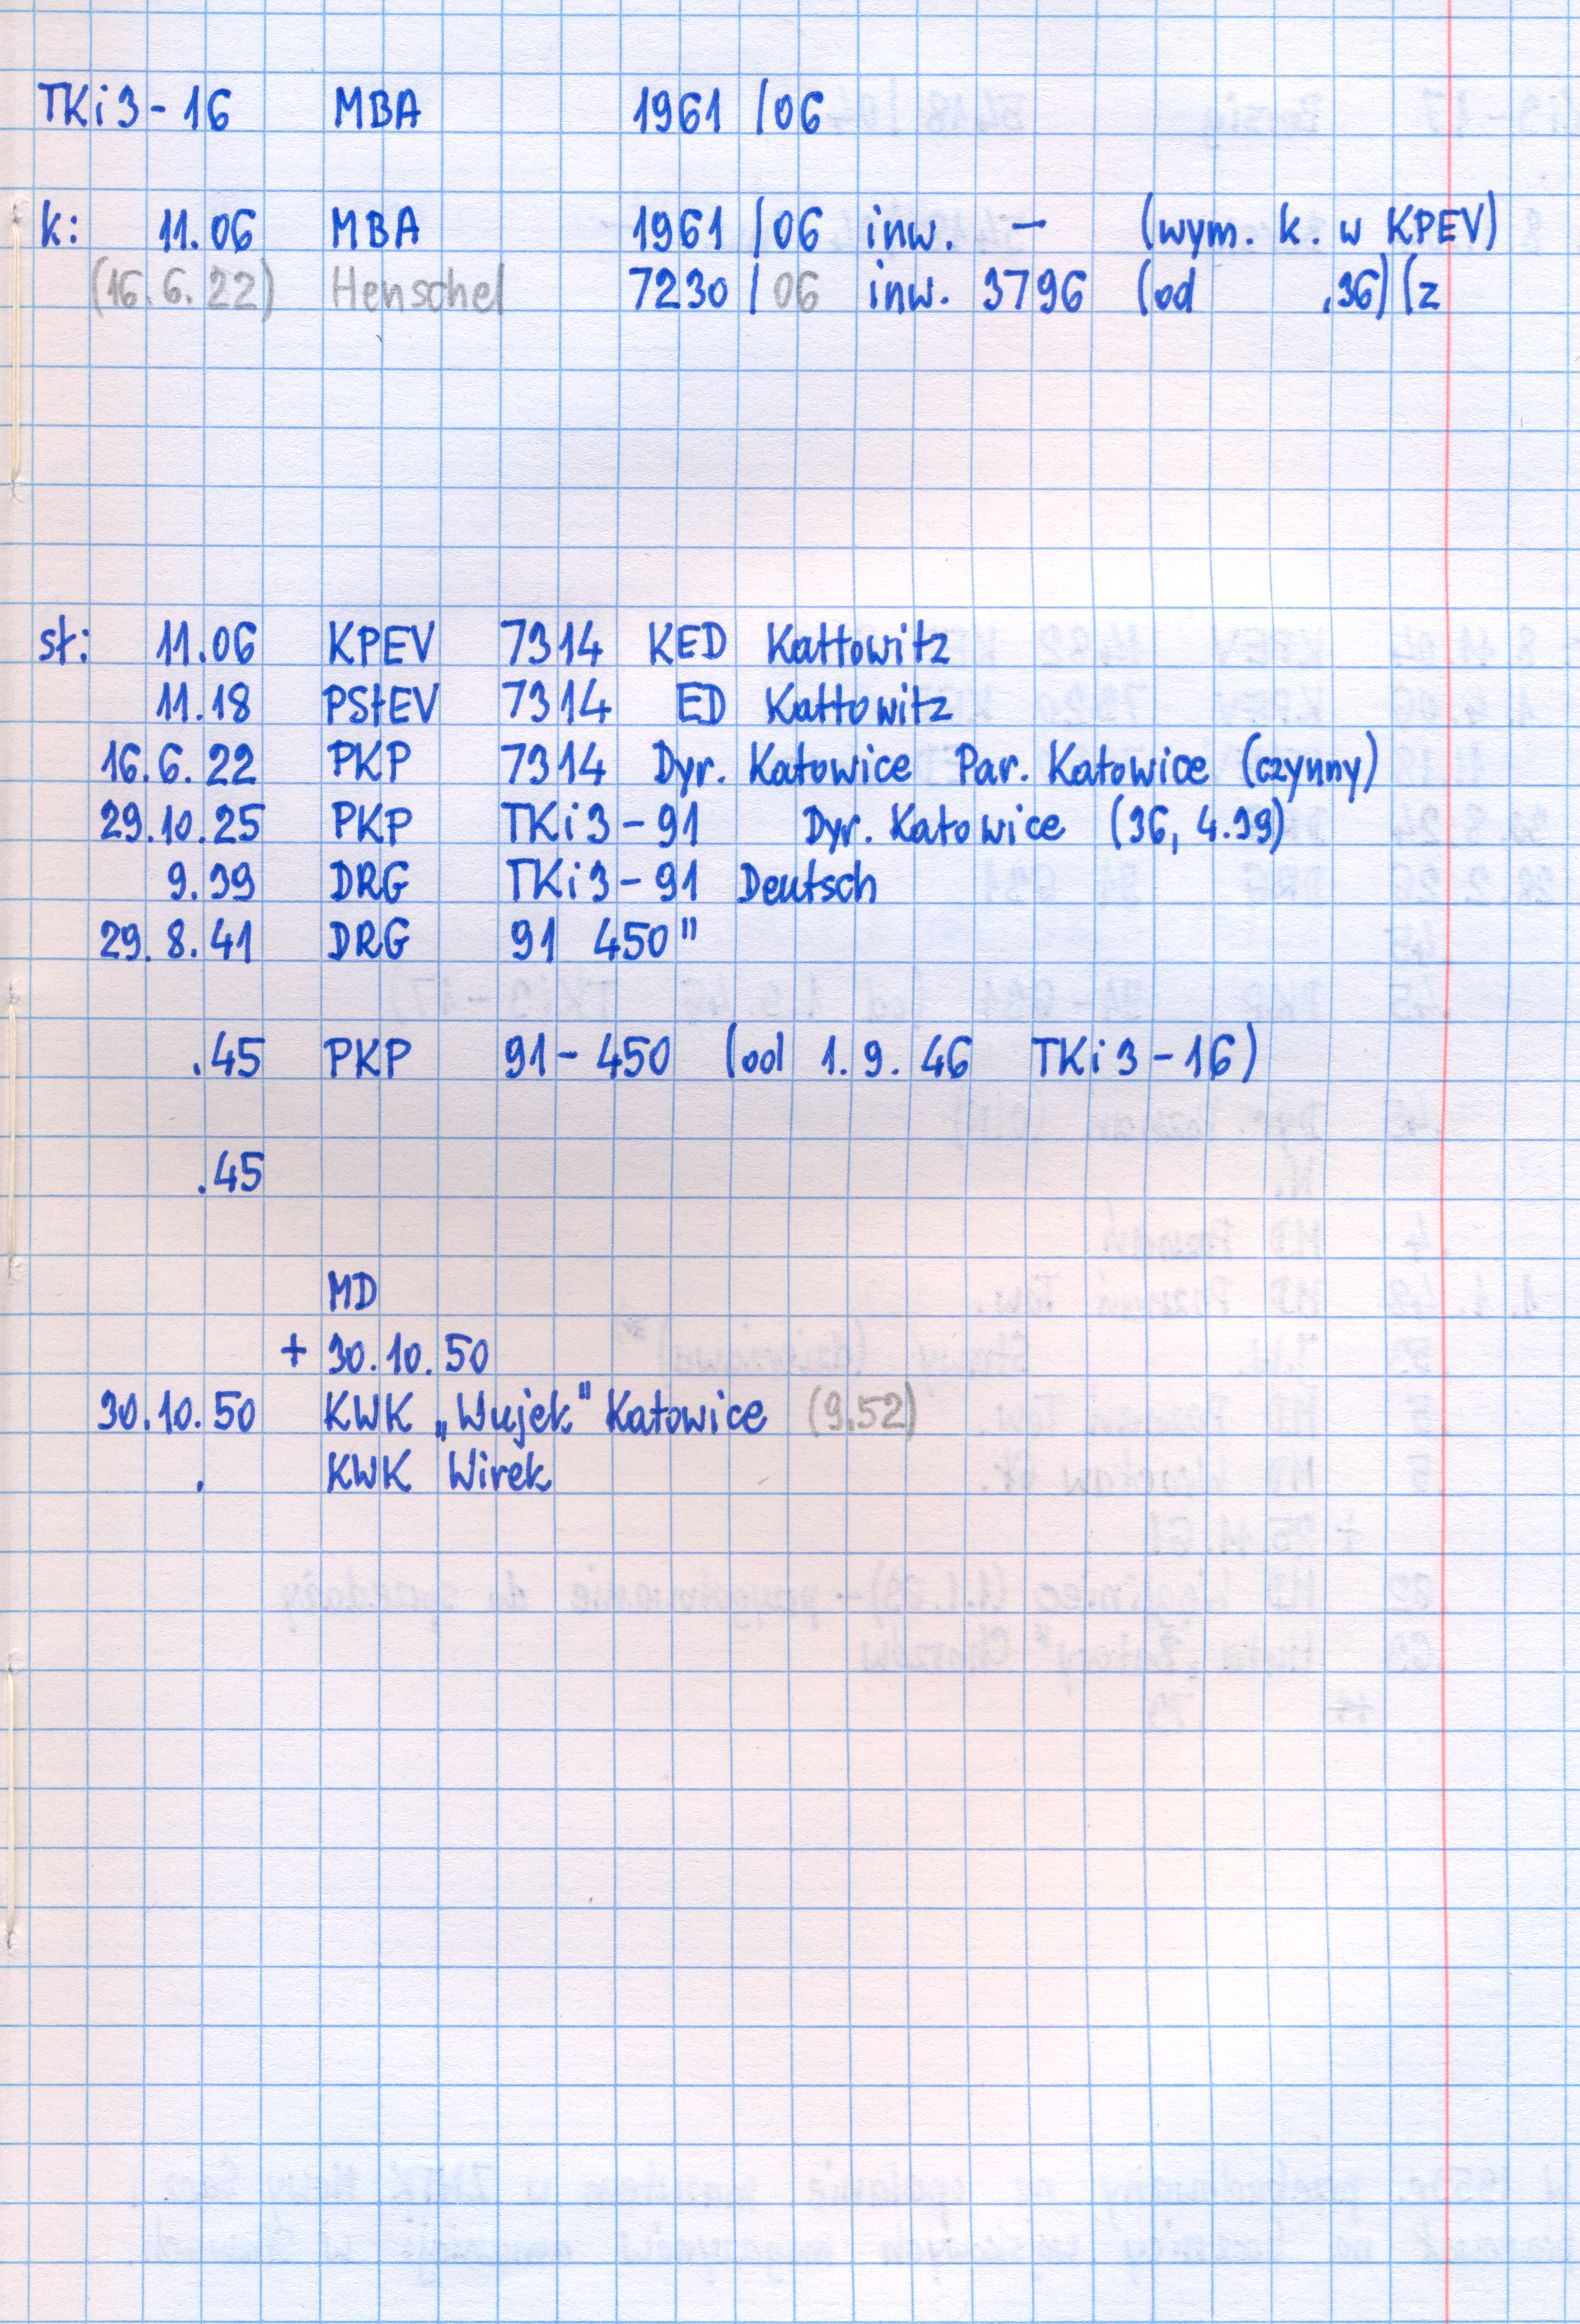 TKi3-16 MBA 1961 /06
k: 11.06 MBA 1961 /06 inw. - (wym. k. w KPEV)
(16.6.22) Henschel 7230 / 06 inw. 3796 (od .36) (z
sł: 11.06 KPEV 7314 KED Kattowitz
11.18 PStEV 7314 ED Kattowitz
16.6.22 PKP 7314 Dyr. Katowice Par. Katowice (czynny)
29.10.25 PKP TKi3-91 Dyr. Katowice (36, 4.39)
9.39 DRG TKi3-91 Deutsch
29.8.41 DRG 91 450"
.45 PKP 91-450 (od 1.9.46 TKi3-16)
.45
MD
+ 30.10.50
30.10.50 KWK „Wujek" Katowice (9.52)
. KWK Wirek